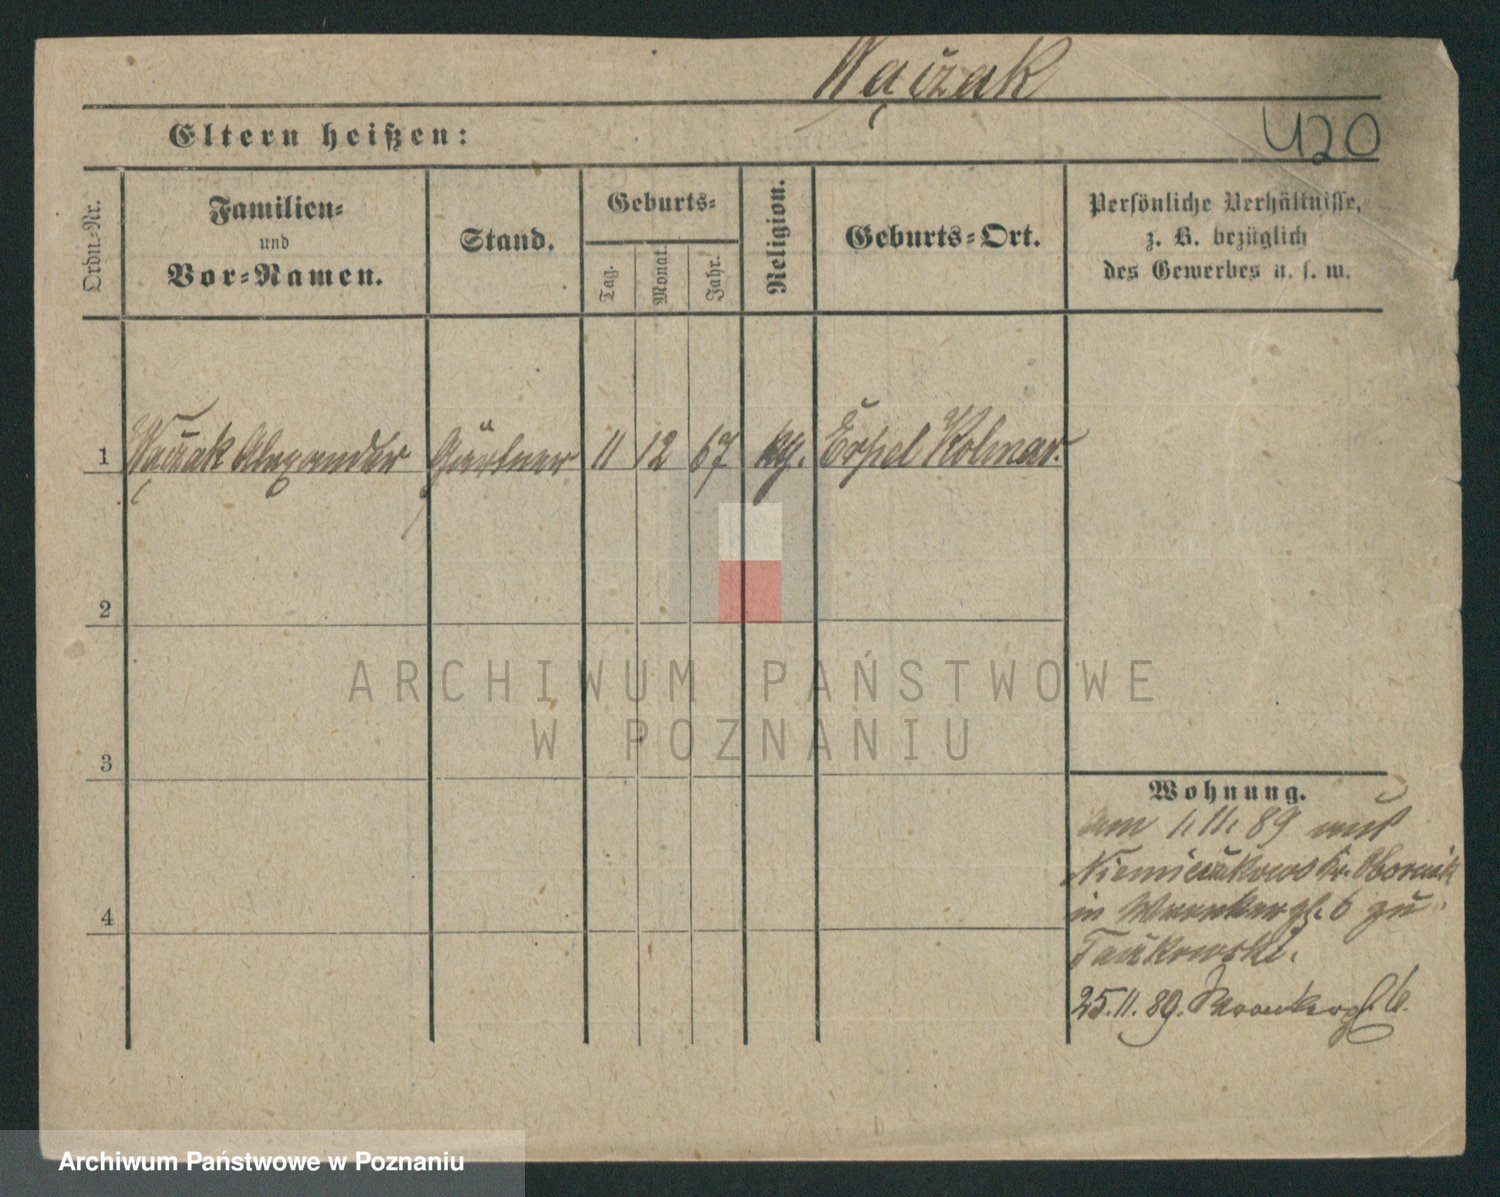 Wączak
420
Eltern heißen:
Ordn.-Nr.
Familien-
und
Vor-Namen.
Stand.
Geburts-
Tag.
Monat.
Jahr.
Religion.
Geburts-Ort.
Persönliche Verhältnisse,
z. B. bezüglich
des Gewerbes u. s. w.
1 Alexander Gärtner 11 12 67 Kolmar.
2
3
4
ARCHIWUM PAŃSTWOWE
W POZNANIU
Wohnung.
am 1.11.89 aus
Kr. Obornik
in 6 zu
25.11.89. 6.
Archiwum Państwowe w Poznaniu